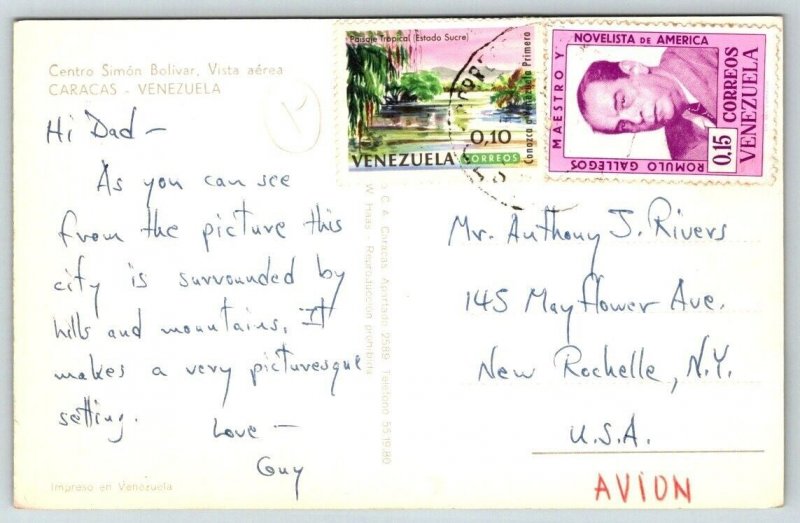 Centro Simón Bolívar, Vista aérea
CARACAS - VENEZUELA
Hi Dad -
As you can see
from the picture this
city is surrounded by
hills and mountains. It
makes a very picturesque
setting. Love -
Guy
Impreso en Venezuela
C. A. Caracas Apartado 2589 Teléfono 55.19.80
W. Haas - Reproducción prohibida
Paisaje Tropical (Estado Sucre)
Conozca a Venezuela Primero
0,10
VENEZUELA CORREOS
NOVELISTA DE AMERICA
MAESTRO Y
ROMULO GALLEGOS
0,15 CORREOS
VENEZUELA
Mr. Anthony J. Rivers
145 Mayflower Ave.
New Rochelle, N.Y.
U.S.A.
AVION